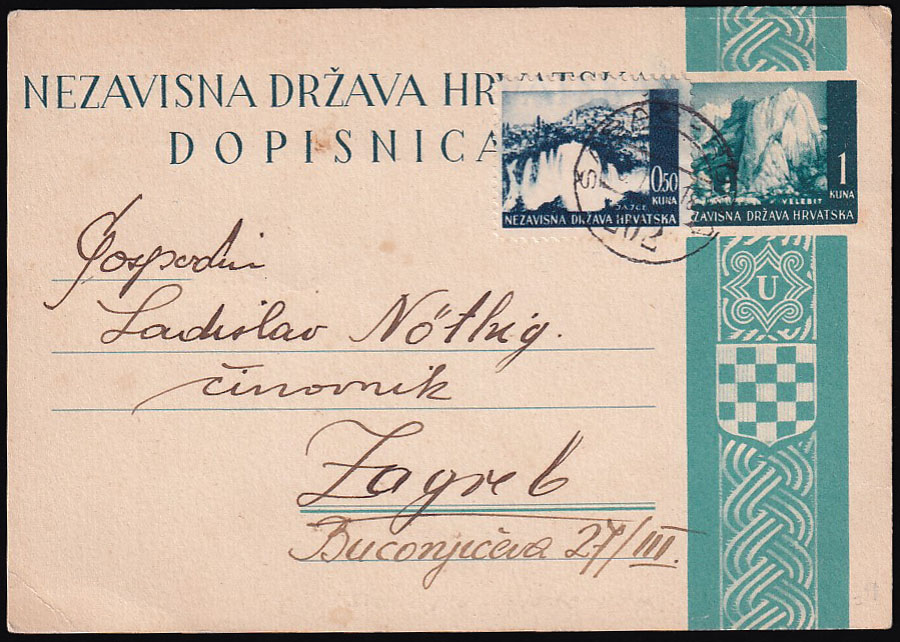 NEZAVISNA DRŽAVA HR
DOPISNICA
0,50
KUNA
JAJCE
NEZAVISNA DRŽAVA HRVATSKA
1
KUNA
VELEBIT
ZAVISNA DRŽAVA HRVATSKA
U
Gospodin
Ladislav Nöthig.
činovnik
Zagreb
Buconjićeva 27/III.